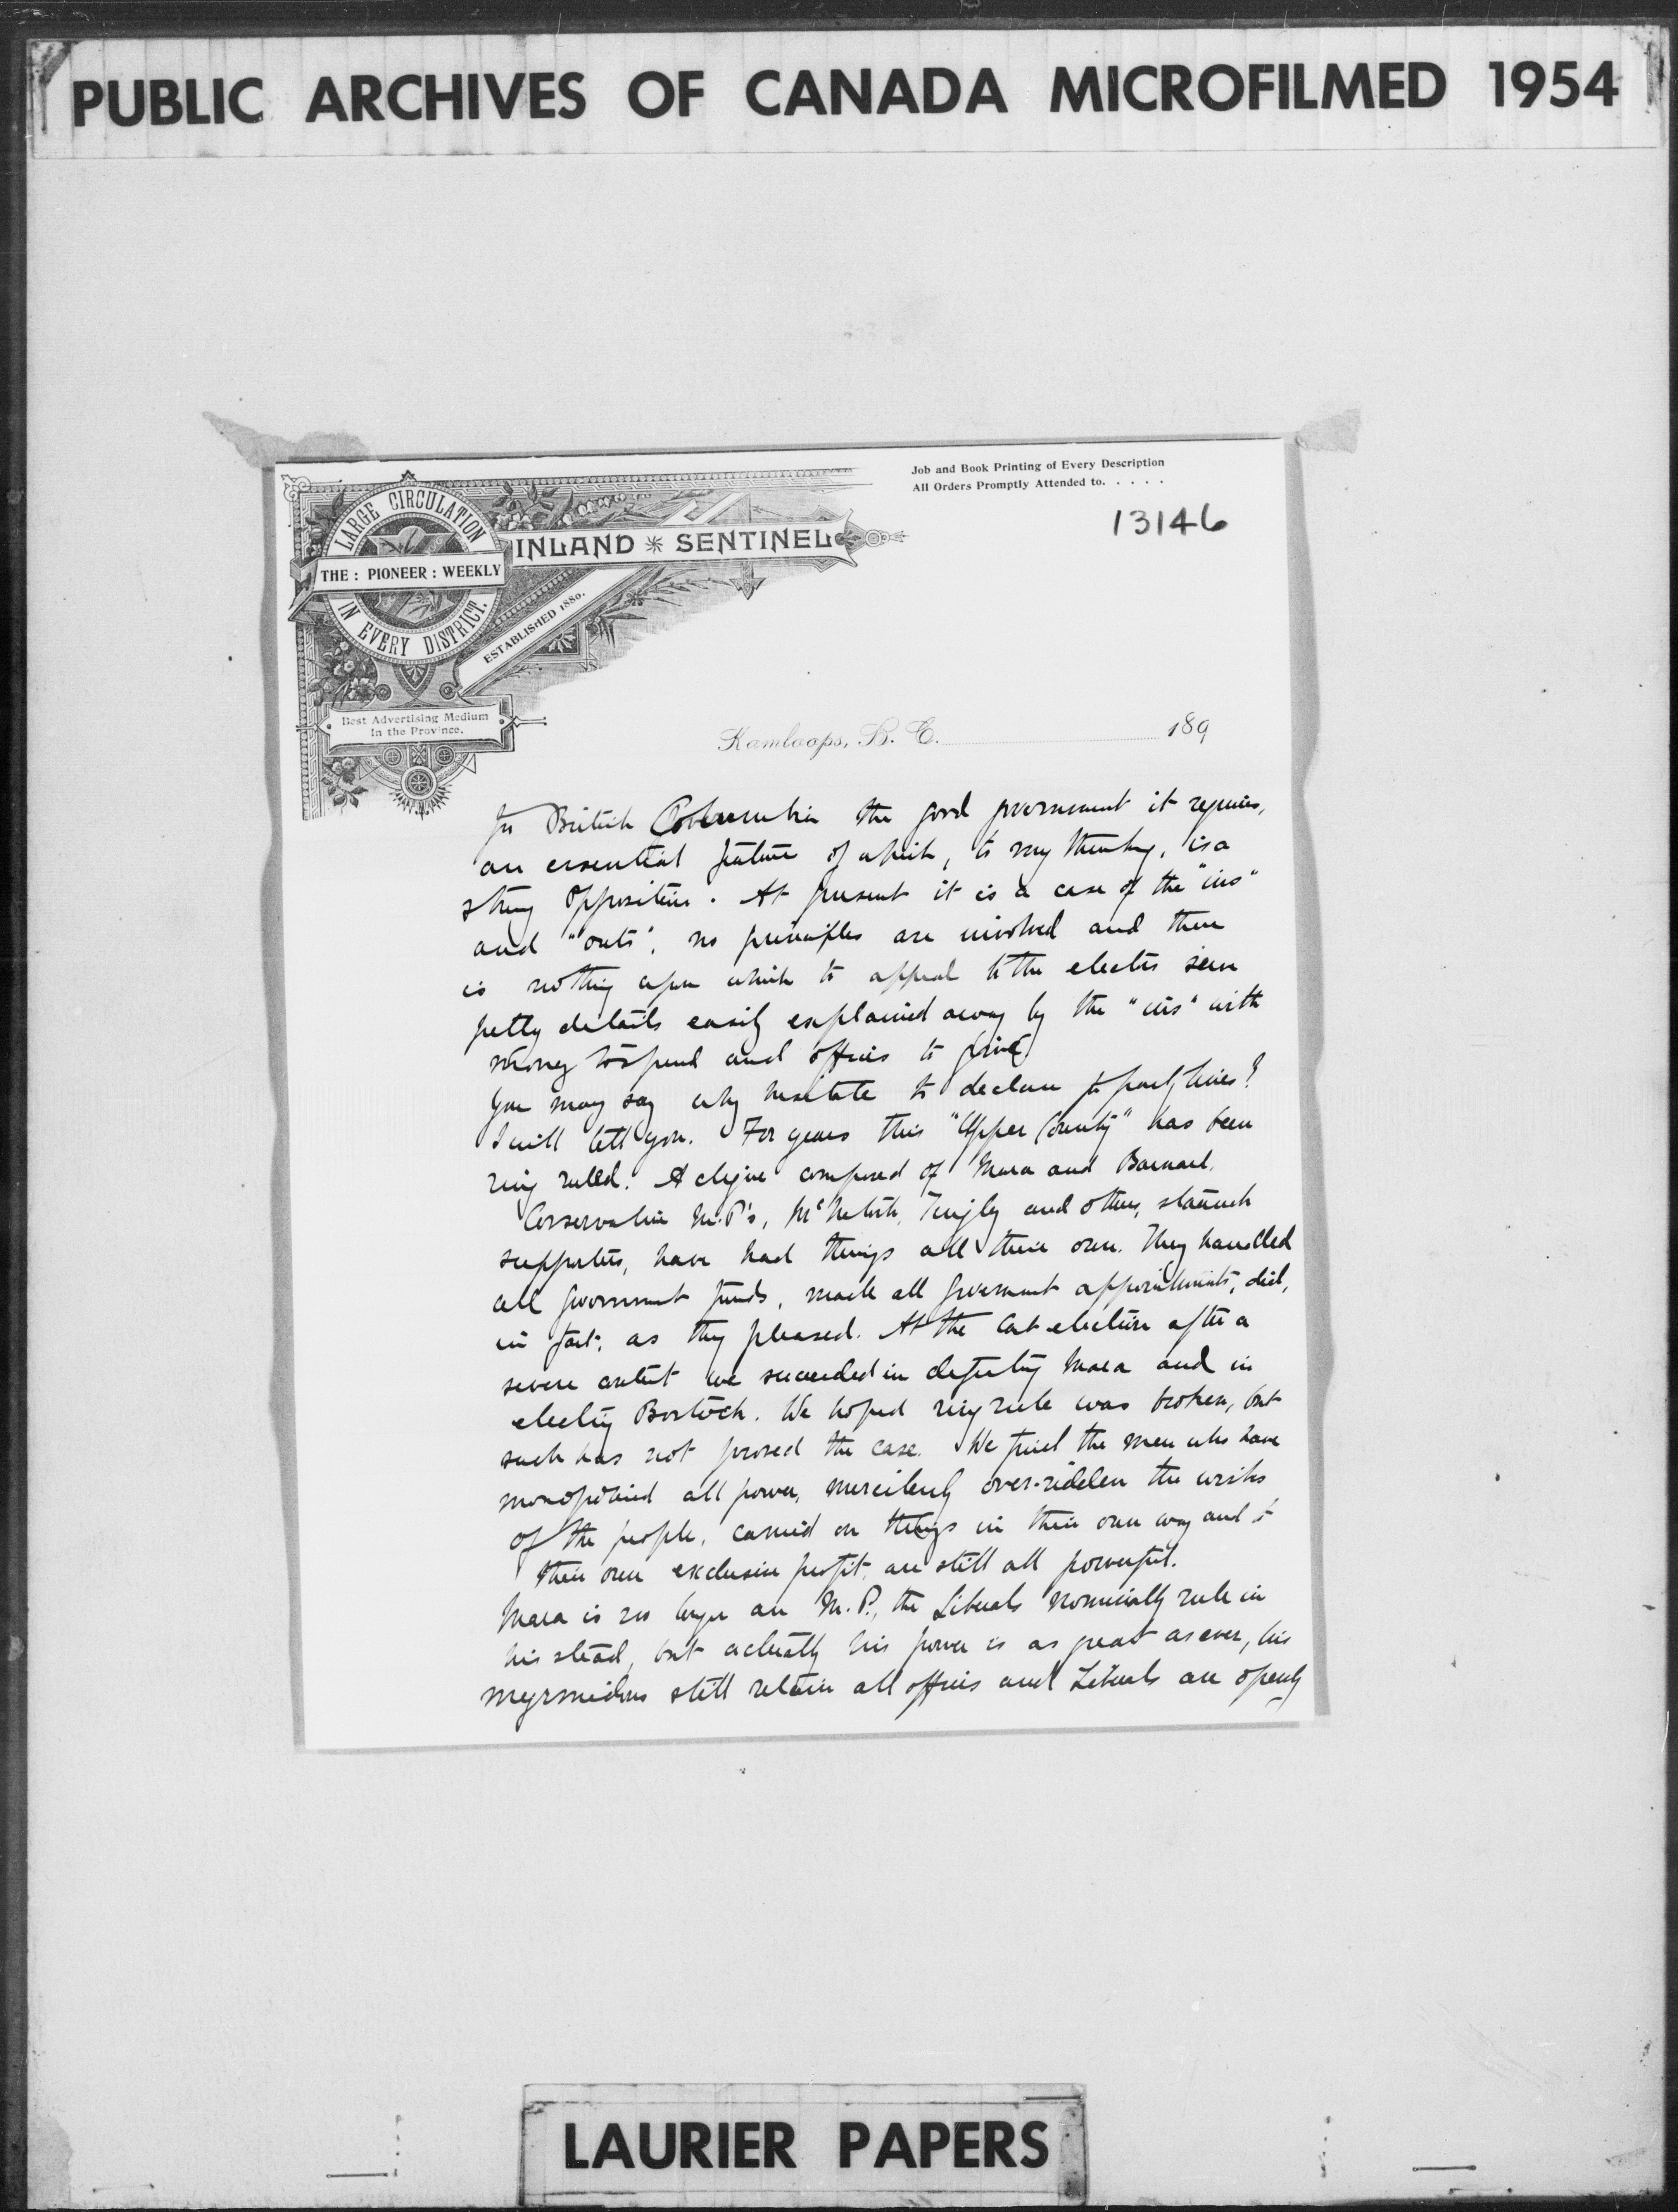 PUBLIC ARCHIVES OF CANADA MICROFILMED 1954
Job and Book Printing of Every Description
All Orders Promptly Attended to. . . . .
13146
LARGE CIRCULATION
INLAND SENTINEL
THE : PIONEER : WEEKLY
IN EVERY DISTRICT.
ESTABLISHED 1880.
Best Advertising Medium
In the Province.
Kamloops, B. C. 189
In British Columbia the good government it requires,
an essential feature of which, to my thinking, is a
strong Opposition. At present it is a case of the "ins"
and "outs", no principles are involved and there
is nothing upon which to appeal to the electors save
petty details easily explained away by the "ins" with
money to spend and offices to give.
You may say why hesitate to declare for party lines?
I will tell you. For years this "Upper Country" has been
ring ruled. A clique composed of Mara and Barnard,
Conservative M.P's, Tingley and others, staunch
supporters, have had things all their own. They handled
all government funds, made all government appointments, did,
in fact, as they pleased. At the last election after a
severe contest we succeeded in defeating Mara and in
electing Bostock. We hoped ring rule was broken, but
such has not proved the case. We find the men who have
monopolized all power, mercilessly over-ridden the wishes
of the people, carried on things in their own way and to
their own exclusive profit, are still all powerful.
Mara is no longer an M.P., the Liberals nominally rule in
his stead, but actually his power is as great as ever, his
myrmidons still retain all offices and Liberals are openly
LAURIER PAPERS